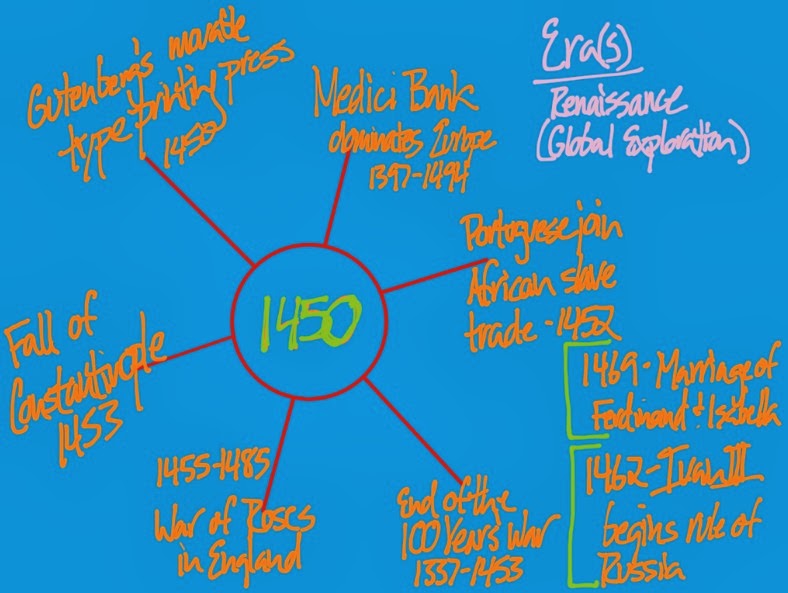 Gutenberg's movable
type printing press
1450
Medici Bank
dominates Europe
1397-1494
Era(s)
Renaissance
(Global Exploration)
Portuguese join
African slave
trade - 1452
1450
Fall of
Constantinople
1453
1455-1485
War of Roses
in England
End of the
100 Years War
1337-1453
1469 - Marriage of
Ferdinand & Isabella
1462 - Ivan III
begins rule of
Russia